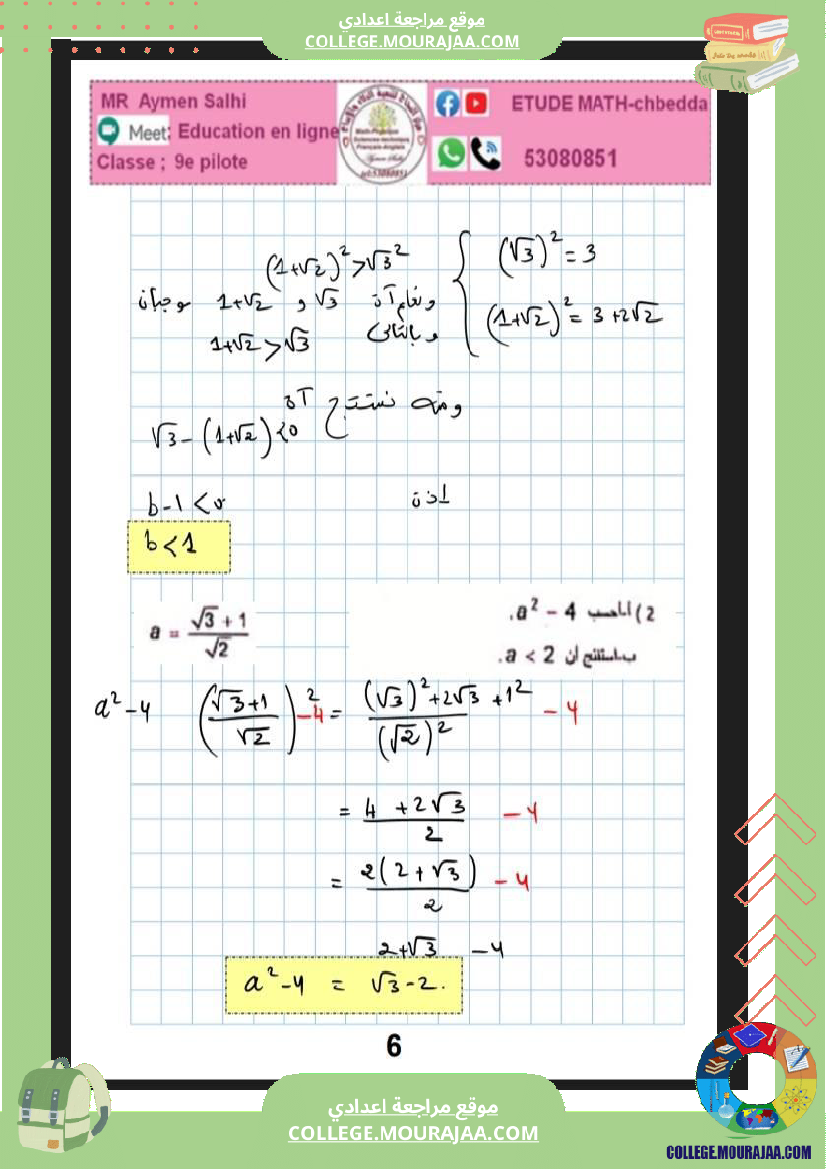 موقع مراجعة اعدادي
COLLEGE.MOURAJAA.COM
MR Aymen Salhi
Meet: Education en ligne
Classe ; 9e pilote
ETUDE MATH-chbedda
53080851
(1+√2)² > √3²
(√3)² = 3
ونعلم أن √3 و 1+√2 موجبان
(1+√2)² = 3 + 2√2
وبالتالي 1+√2 > √3
ومنه نستنتج أن
√3 - (1+√2) < 0
اذن b-1 < 0
b < 1
a = (√3 + 1)/√2
2) a² − 4
a < 2.
a² - 4 ((√3+1)/√2)² - 4 = ((√3)² + 2√3 + 1²)/(√2)² - 4
= (4 + 2√3)/2 - 4
= 2(2 + √3)/2 - 4
2+√3 - 4
a² - 4 = √3 - 2.
6
موقع مراجعة اعدادي
COLLEGE.MOURAJAA.COM
COLLEGE.MOURAJAA.COM